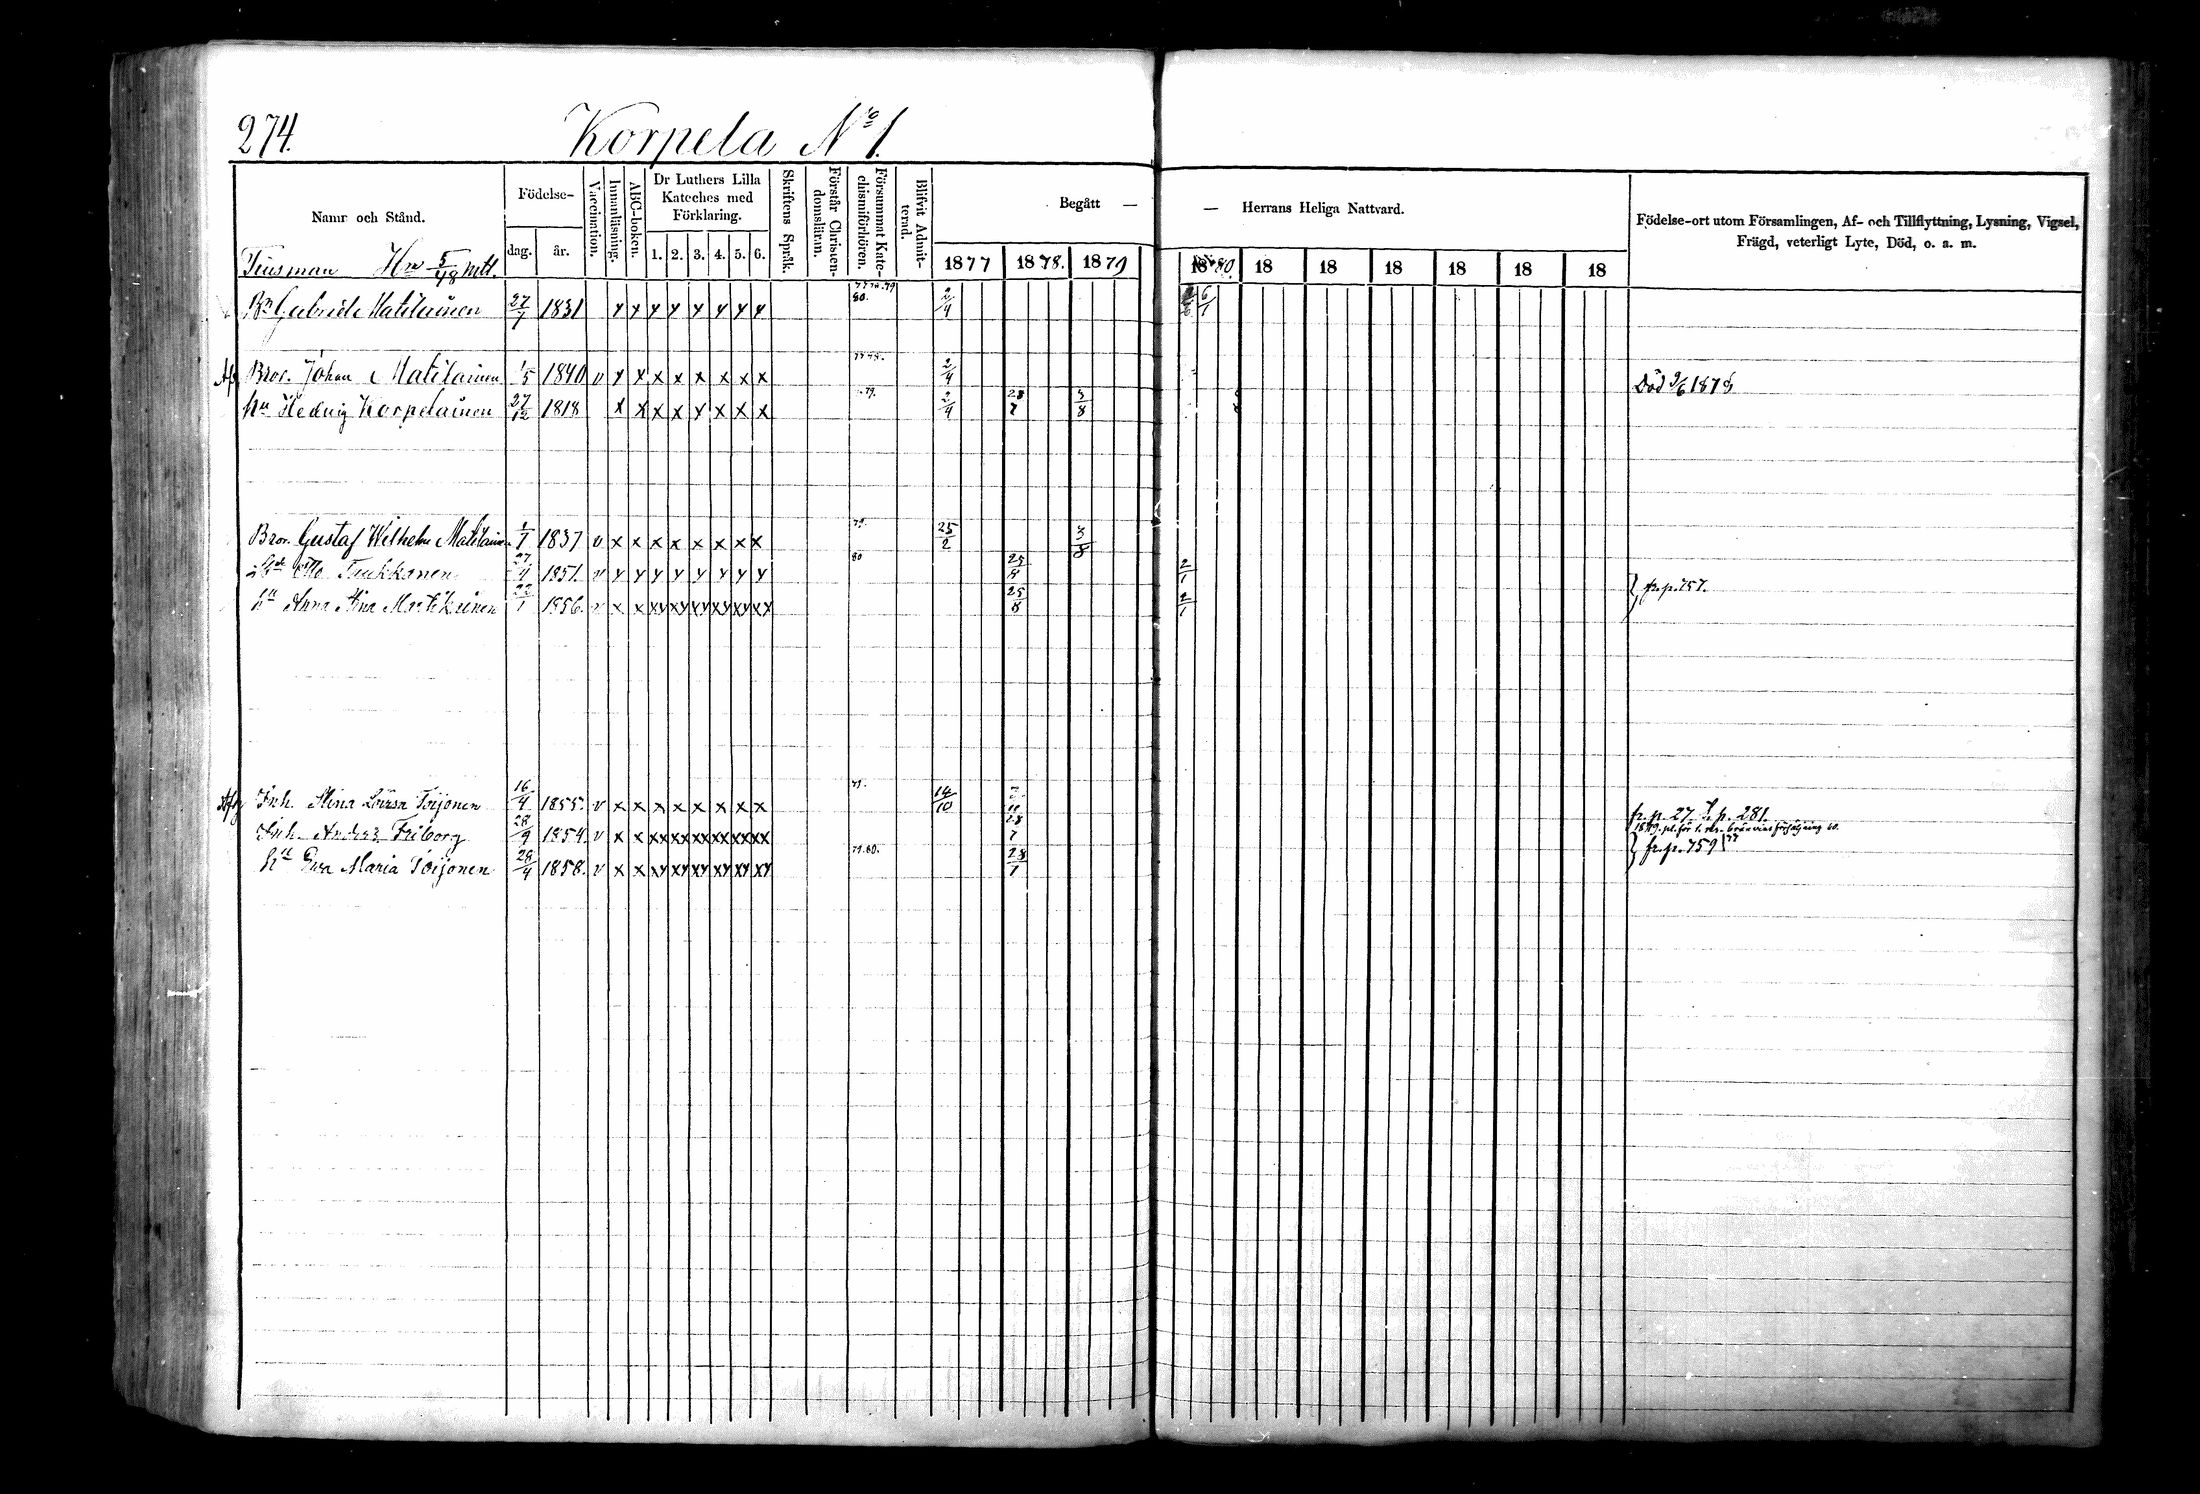 274.
Korpela No 1.
Namn och Stånd.
Födelse-
dag.
år.
Vaccination.
Innanläsning.
ABC-boken.
Dr Luthers Lilla
Kateches med
Förklaring.
1. 2. 3. 4. 5. 6.
Skriftens Språk.
Förstår Christen-
domslär:n.
Försummat Kate-
chismiförhören.
Blifvit Admit-
terad.
Begått —
— Herrans Heliga Nattvard.
1877 1878. 1879
1880. 18 18 18 18 18 18
Födelse-ort utom Församlingen, Af- och Tillflyttning, Lysning, Vigsel,
Frägd, veterligt Lyte, Död, o. a. m.
5/48 mtl.
Bn Gabriel Matilainen 27/7 1831 y y y y y y y y 80. 2/4 6/1
Af Bror. Johan Matilainen 1/5 1840 v y x x x x x x x 2/4 Död 9/6 1878
hu Hedvig Korpelainen 27/12 1818 x x x x y x x x 79. 2/4 28/7 3/8
Bror. Gustaf Wilhelm Matilainen 1/7 1837 v x x x x x x x x 79. 25/2 3/8
Otto Tuukkanen 27/4 1851. v y y y y y y y y 80 25/8 2/1
hu Anna Stina Matikainen 1856. v x x xy xy xy xy xy xy 25/8 2/1 } fr. p. 757.
Afg Inh. Stina Lovisa Toijonen 16/4 1855. v x x x x x x x x 79. 14/10 fr. p. 27 t. p. 281.
Inh. Andreas Friborg 28/9 1854. v x x xx xx xx xx xx xx 28/7
hu Eva Maria Toijonen 28/4 1858. v x x xy xy xy xy xy xy 79.80. 28/7 } fr. p. 759